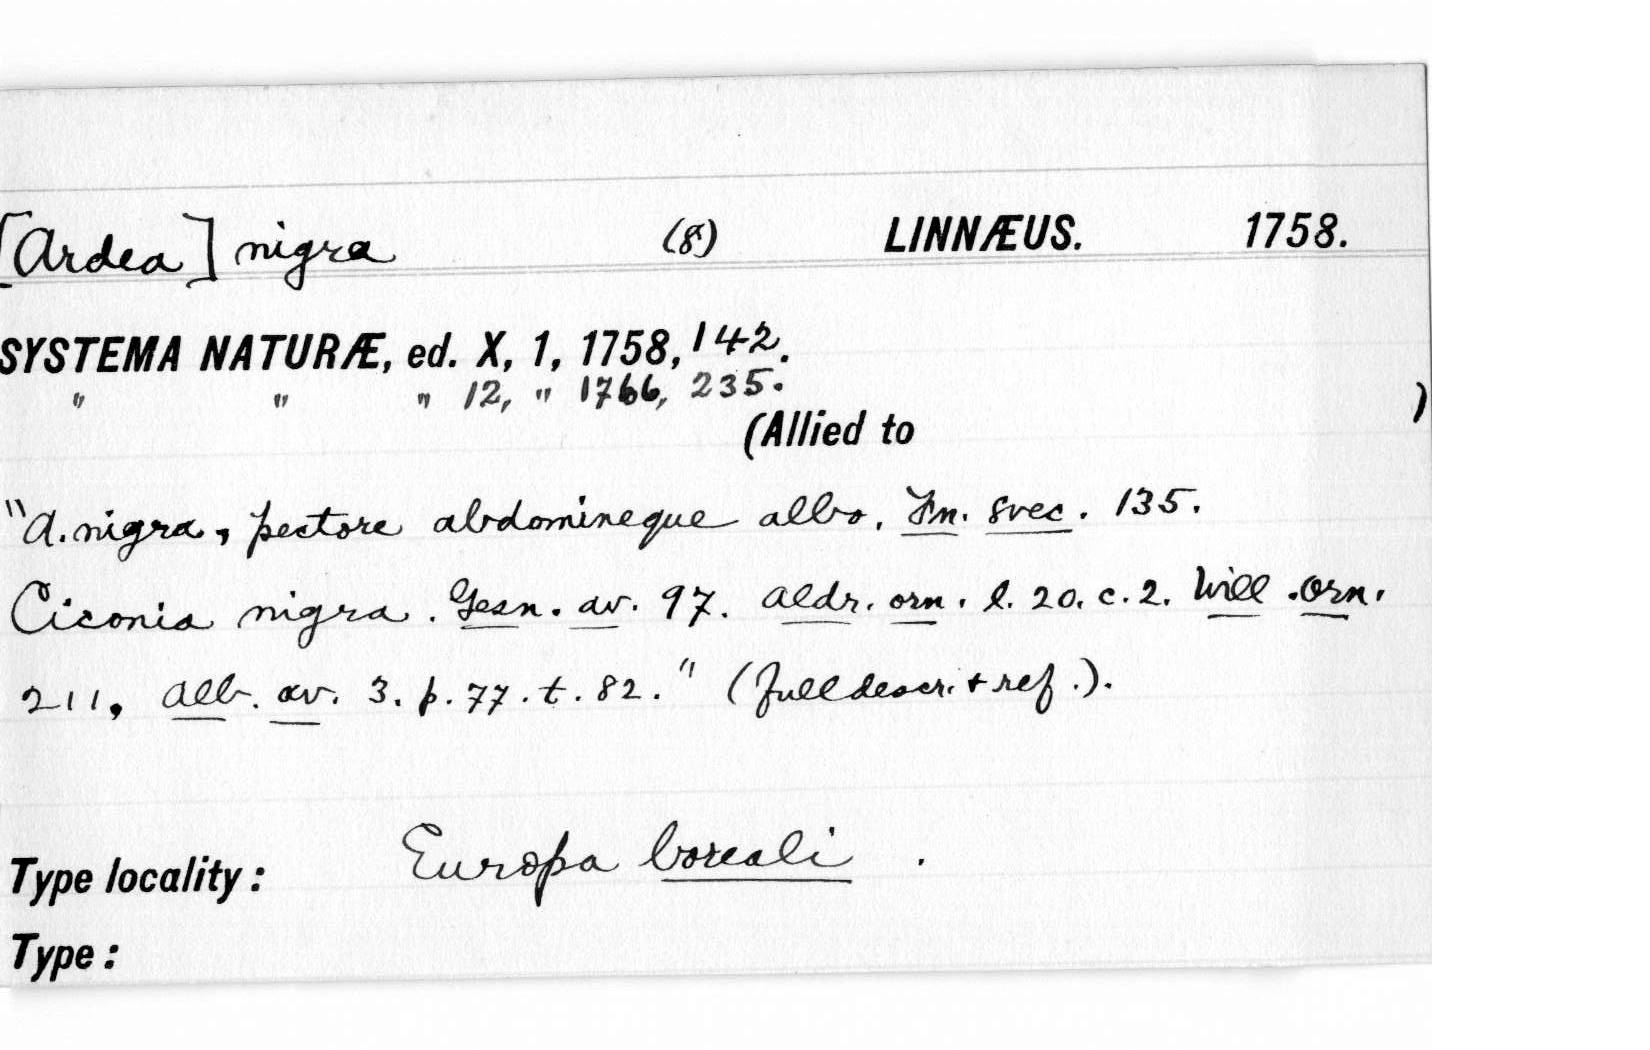 [Ardea] nigra (8) LINNÆUS. 1758.
SYSTEMA NATURÆ, ed. X, 1, 1758, 142.
" " " 12, " 1766, 235.
(Allied to )
"A. nigra, pectore abdomineque albo. Fn. svec. 135.
Ciconia nigra. Gesn. av. 97. Aldr. orn. l. 20. c. 2. Will. orn.
211, Alb. av. 3. p. 77. t. 82." (full descr. + ref.).
Type locality: Europa boreali.
Type: